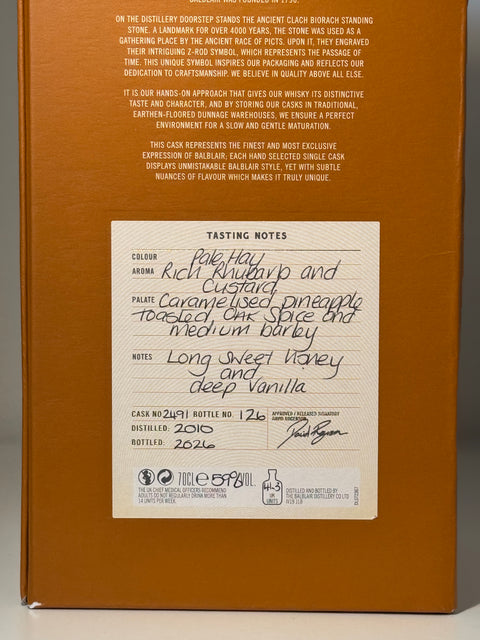 BALBLAIR WAS FOUNDED IN 1790.
ON THE DISTILLERY DOORSTEP STANDS THE ANCIENT CLACH BIORACH STANDING
STONE. A LANDMARK FOR OVER 4000 YEARS, THE STONE WAS USED AS A
GATHERING PLACE BY THE ANCIENT RACE OF PICTS. UPON IT, THEY ENGRAVED
THEIR INTRIGUING Z-ROD SYMBOL, WHICH REPRESENTS THE PASSAGE OF
TIME. THIS UNIQUE SYMBOL INSPIRES OUR PACKAGING AND REFLECTS OUR
DEDICATION TO CRAFTSMANSHIP. WE BELIEVE IN QUALITY ABOVE ALL ELSE.
IT IS OUR HANDS-ON APPROACH THAT GIVES OUR WHISKY ITS DISTINCTIVE
TASTE AND CHARACTER, AND BY STORING OUR CASKS IN TRADITIONAL,
EARTHEN-FLOORED DUNNAGE WAREHOUSES, WE ENSURE A PERFECT
ENVIRONMENT FOR A SLOW AND GENTLE MATURATION.
THIS CASK REPRESENTS THE FINEST AND MOST EXCLUSIVE
EXPRESSION OF BALBLAIR; EACH HAND SELECTED SINGLE CASK
DISPLAYS UNMISTAKABLE BALBLAIR STYLE, YET WITH SUBTLE
NUANCES OF FLAVOUR WHICH MAKES IT TRULY UNIQUE.
TASTING NOTES
COLOUR Pale Hay
AROMA Rich Rhubarb and
Custard
PALATE Caramelised pineapple
toasted OAK Spice and
medium barley
NOTES Long sweet honey
and
deep vanilla
CASK NO 2491 BOTTLE NO. 126
APPROVED / RELEASED SIGNATORY
DISTILLED: 2010
BOTTLED: 2026
70CL e 59% VOL.
THE UK CHIEF MEDICAL OFFICERS RECOMMEND
ADULTS DO NOT REGULARLY DRINK MORE THAN
14 UNITS PER WEEK.
41.3
UK
UNITS
DISTILLED AND BOTTLED BY
THE BALBLAIR DISTILLERY CO LTD
IV19 1LB